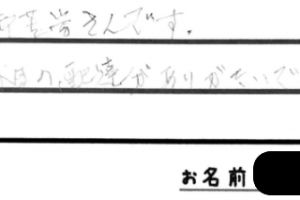 さんです。
の配達がありがたいで
お名前